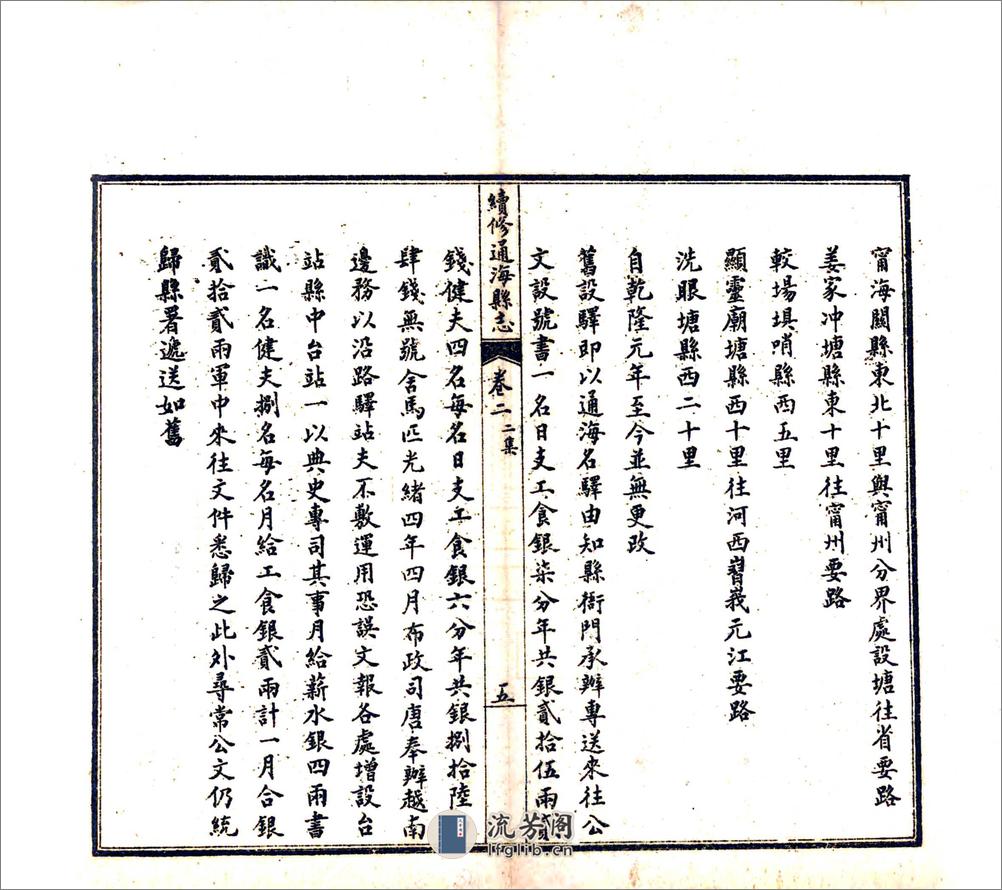 甯海關縣東北十里與甯州分界處設塘往省要路
姜家冲塘縣東十里往甯州要路
較場埧哨縣西五里
顯靈廟塘縣西十里往河西嶍峩元江要路
洗眼塘縣西二十里
自乾隆元年至今並無更改
舊設驛即以通海名驛由知縣衙門承辦專送來往公
文設號書一名日支工食銀柒分年共銀貳拾伍兩貳
續修通海縣志
卷二
二集
五
錢健夫四名每名日支工食銀六分年共銀捌拾陸兩
肆錢無號舍馬匹光緒四年四月布政司唐奉辦越南
邊務以沿路驛站夫不敷運用恐誤文報各處增設台
站縣中台站一以典史專司其事月給薪水銀四兩書
識一名健夫捌名每名月給工食銀貳兩計一月合銀
貳拾貳兩軍中來往文件悉歸之此外尋常公文仍統
歸縣署遞送如舊
流芳阁
lfglib.cn